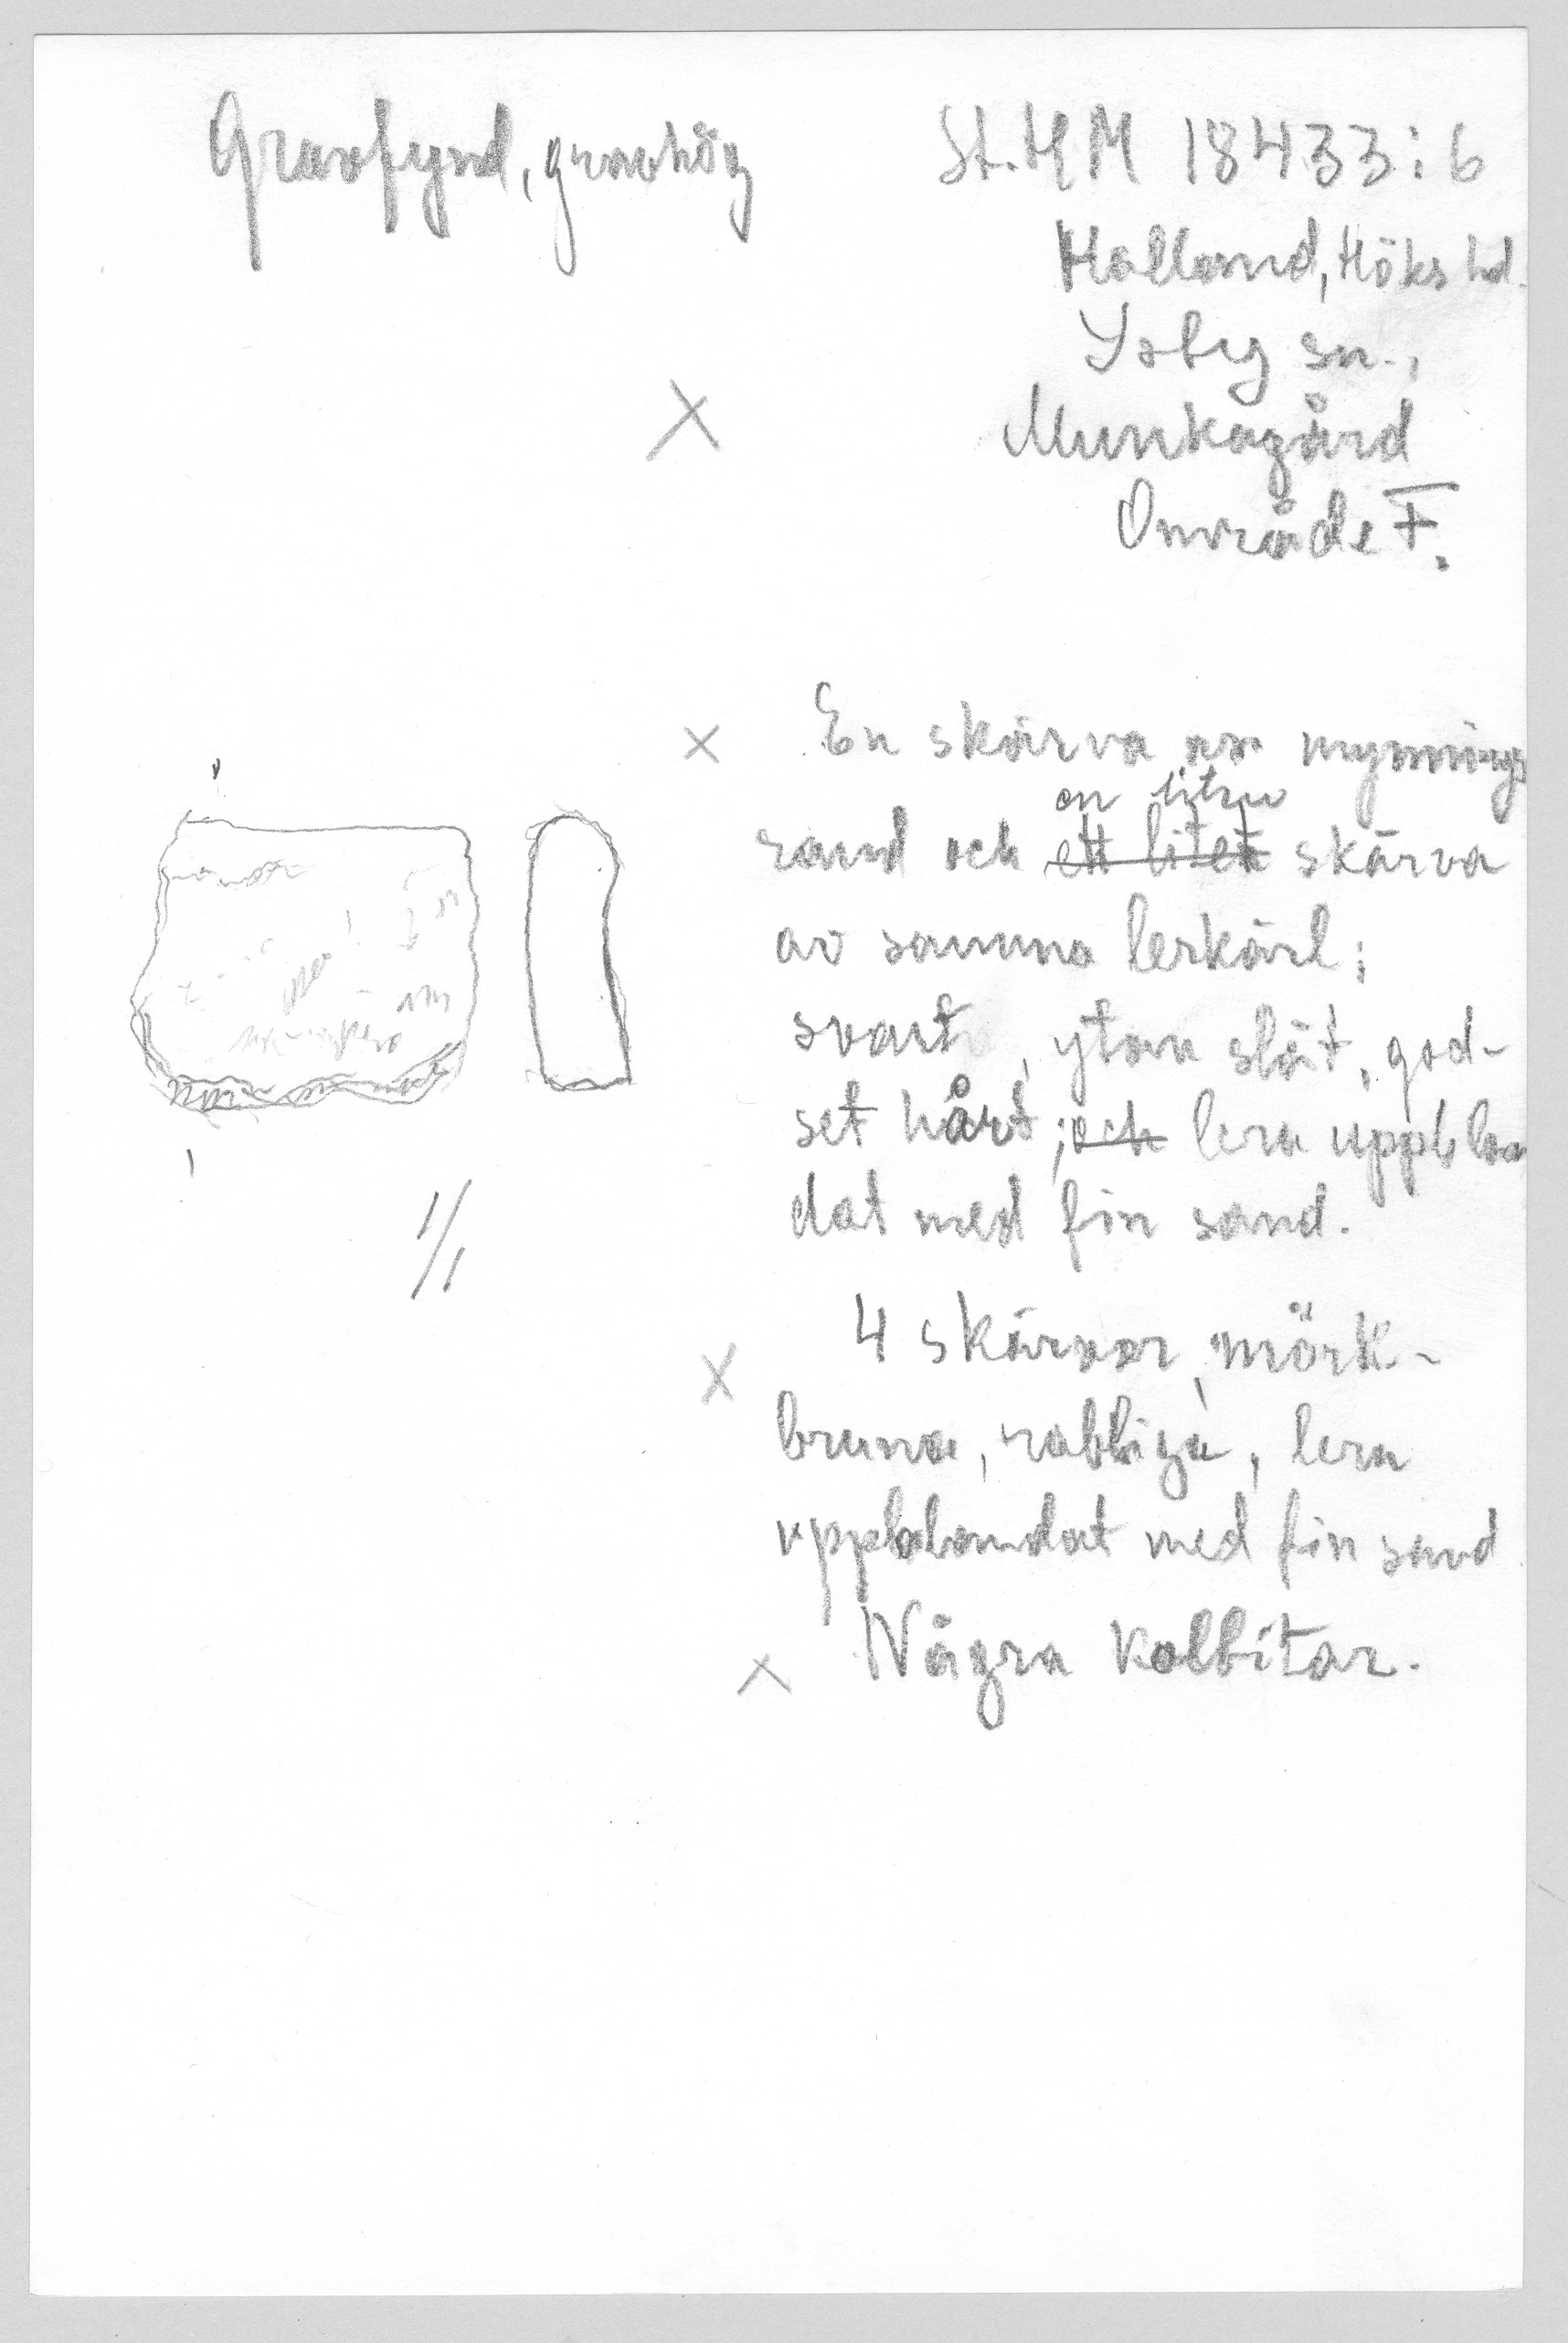 Gravfynd, gravhög
St. H M 18433:6
Halland, Höks hd.
Ysby sn.,
Munkagård
Område F.
X
X En skärva av mynnings
en liten
rand och ett litet skärva
av samma lerkärl;
svart, ytan slät, god-
set hårt; och lera uppblan
dat med fin sand.
1/1
X 4 skärvor, mörk-
bruna, rabbiga, lera
uppblandat med fin sand
X Några kolbitar.